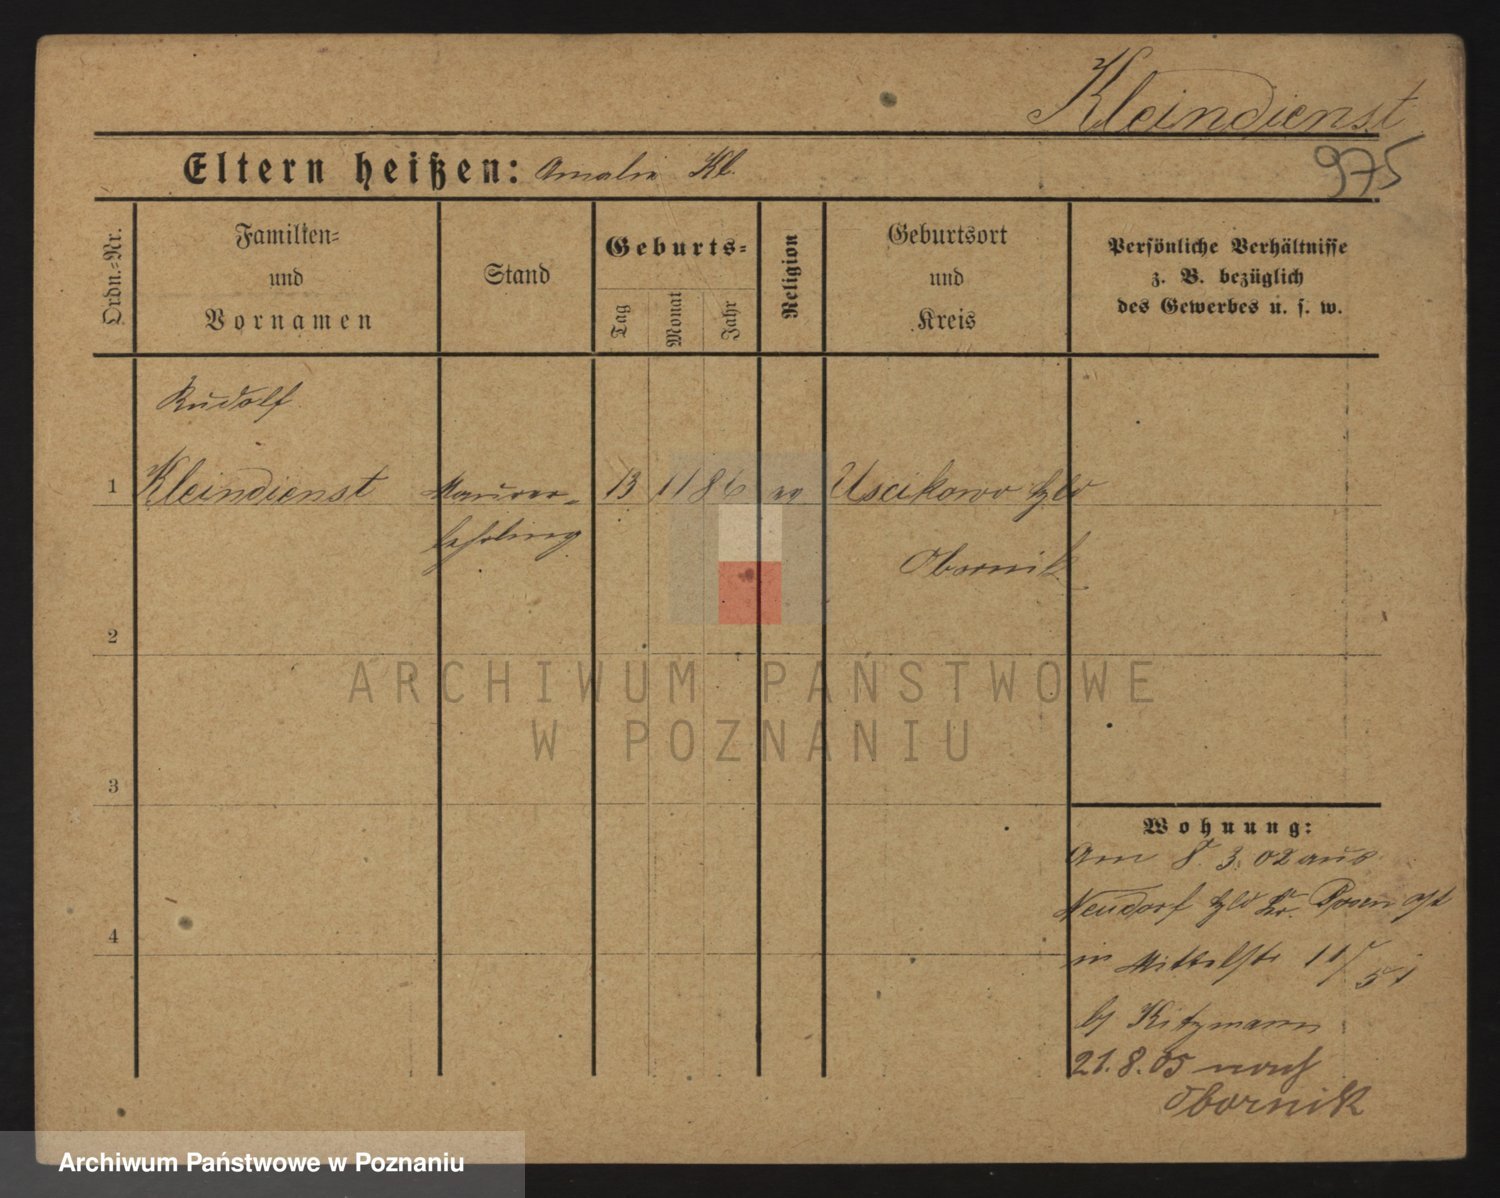 Kleindienst
Eltern heißen: Amalie Kl.
975
Ordn.-Nr.
Familien-
und
Vornamen
Stand
Geburts-
Tag
Monat
Jahr
Religion
Geburtsort
und
Kreis
Persönliche Verhältnisse
z. B. bezüglich
des Gewerbes u. s. w.
Rudolf
1 Kleindienst Maurer- 13 11 86 ev Uscikowo Hld
lehrling Obornik
2
ARCHIWUM PAŃSTWOWE
W POZNANIU
3
Wohnung:
Am 8. 3. 02 aus
Neudorf Hld Kr. Posen Ost
4
in Mittelstr 11/ 51
bei Kitzmann
21. 8. 05 nach
Obornik
Archiwum Państwowe w Poznaniu